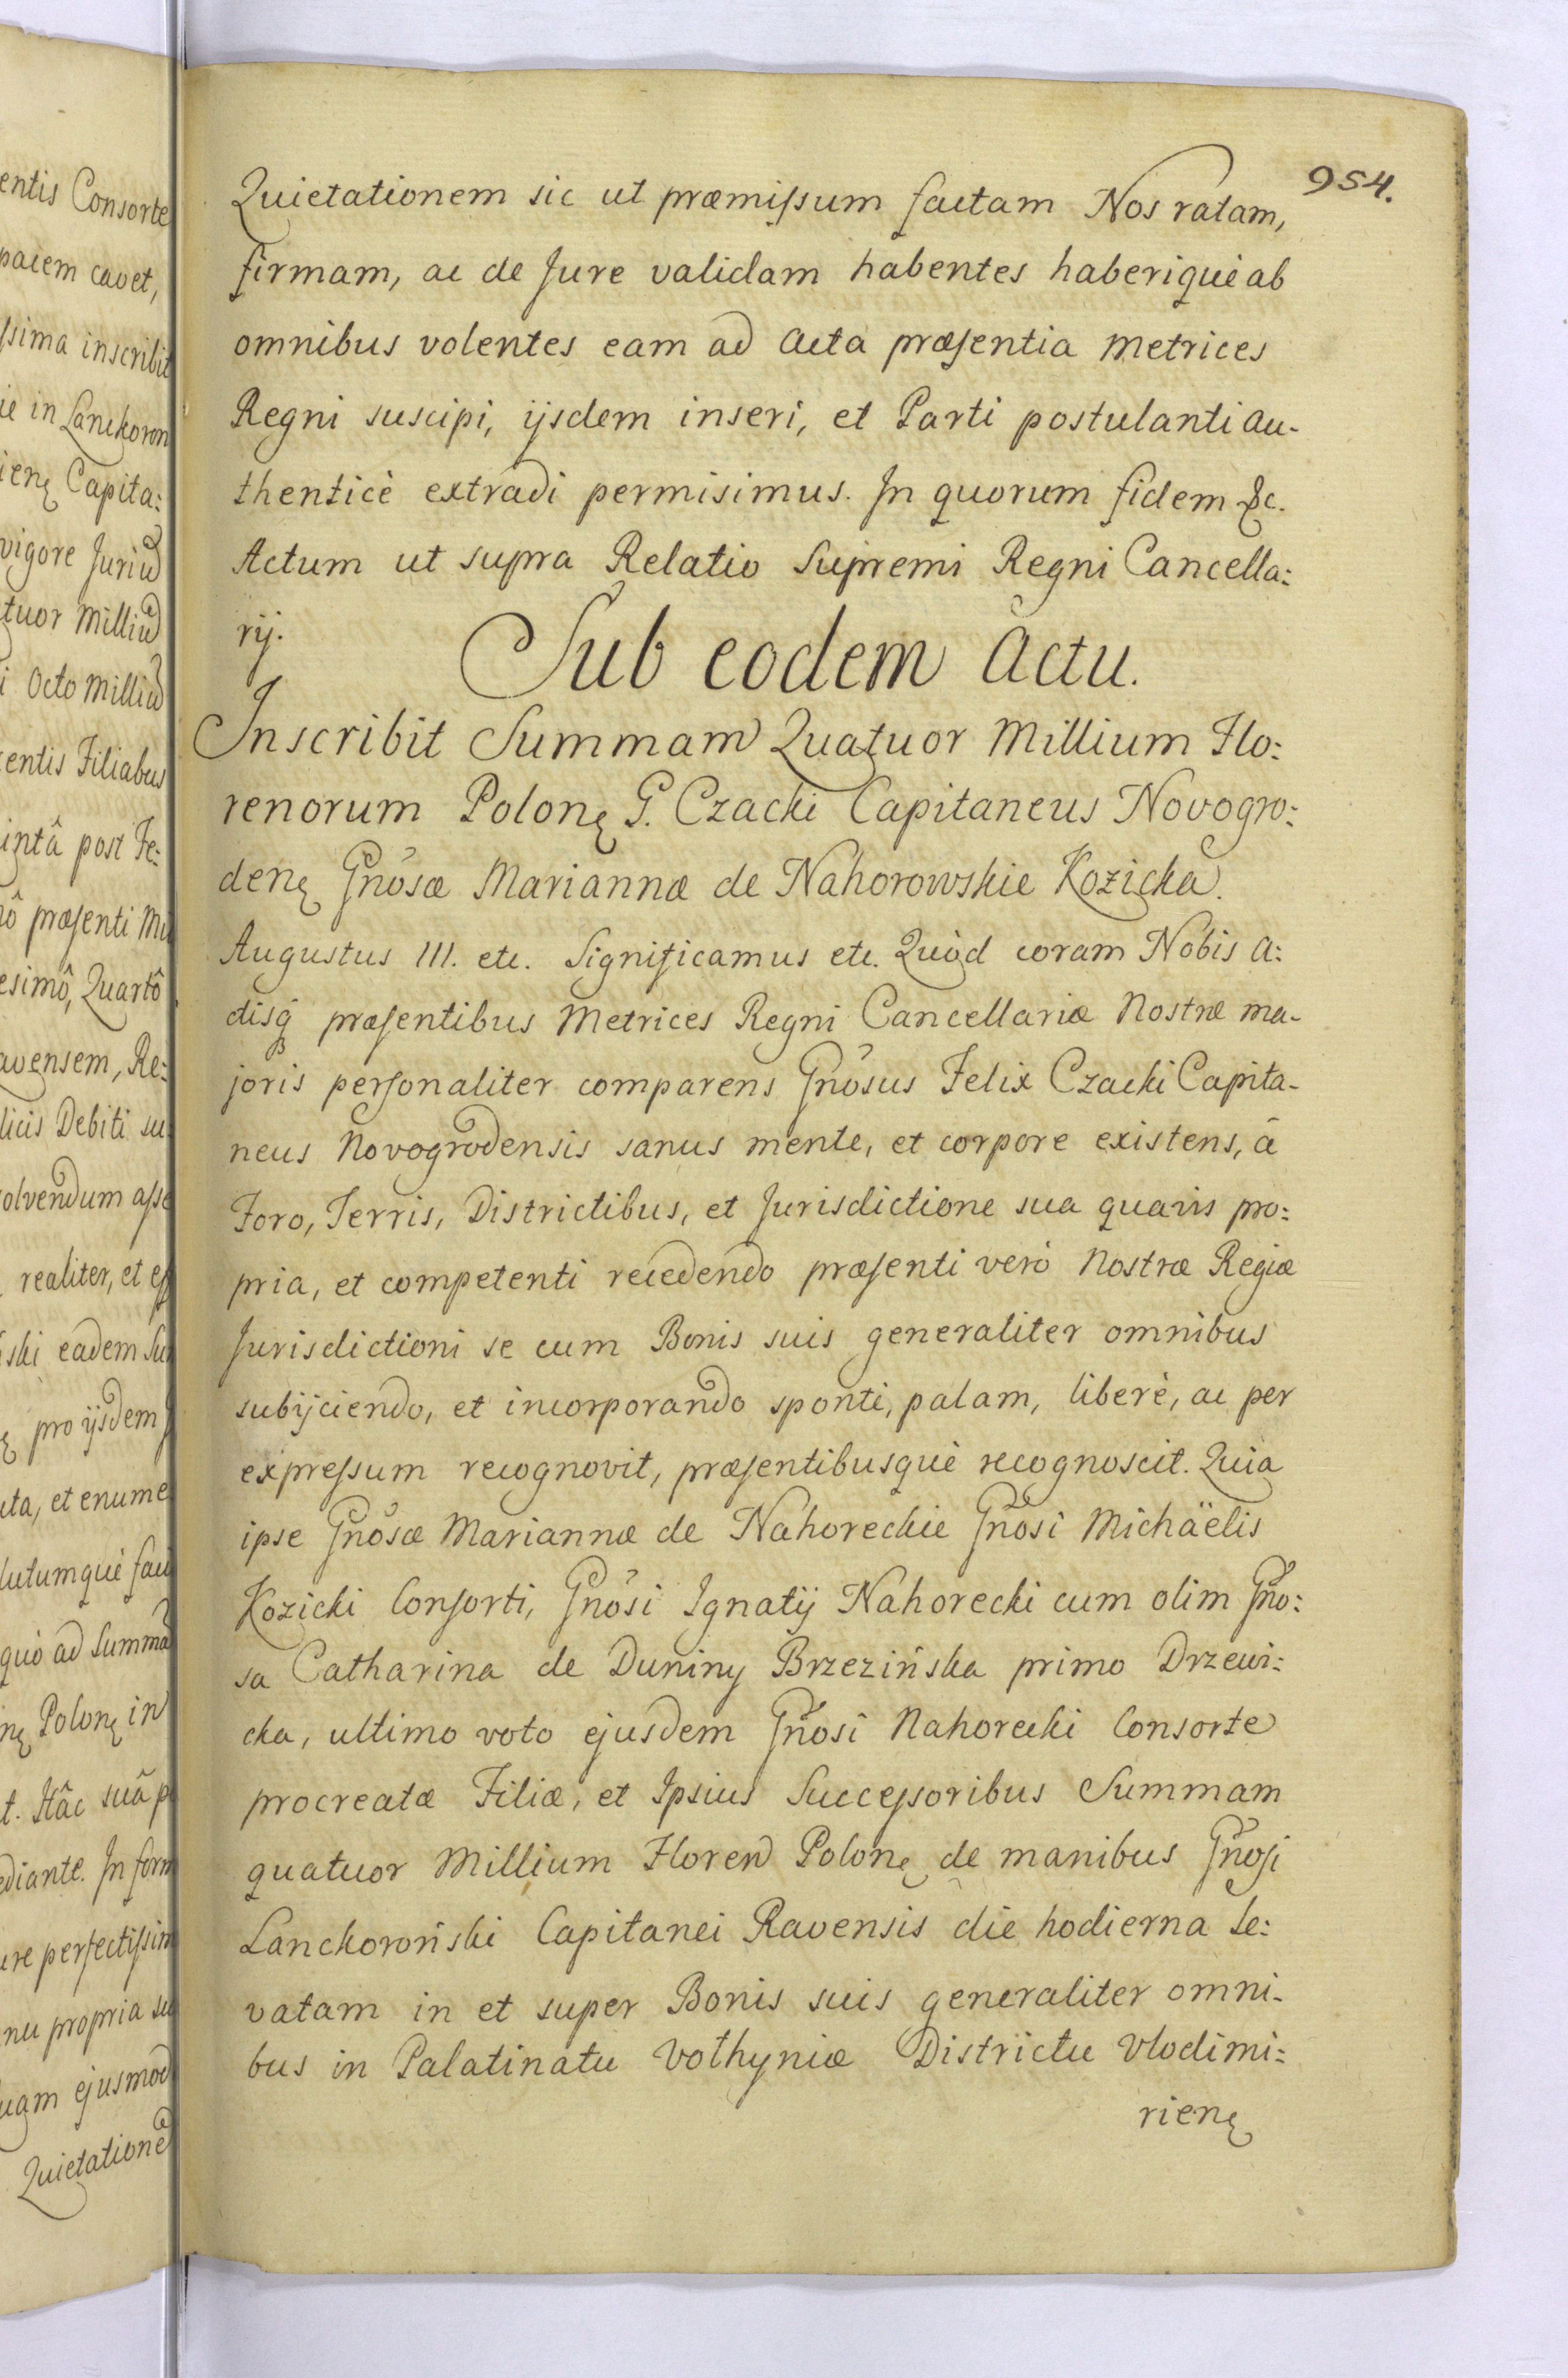 954.
Quietationem sic ut præmissum factam Nos ratam,
firmam, ac de Jure validam habentes haberiquè ab
omnibus volentes eam ad Acta præsentia Metrices
Regni suscipi, ijsdem inseri, et Parti postulanti au-
thenticè extradi permisimus. In quorum fidem &c.
Actum ut supra Relatio Supremi Regni Cancella:
rij.
Sub eodem Actu.
Inscribit Summam Quatuor Millium Flo:
renorum Polonę G. Czacki Capitaneus Novogro:
denę Gnosæ Mariannæ de Nahorowskie Kozicka.
Augustus III. etc. Significamus etc. Quòd coram Nobis A:
ctisq̃ præsentibus Metrices Regni Cancellariæ Nostræ ma-
joris personaliter comparens Gnosus Felix Czacki Capita-
neus Novogrodensis sanus mente, et corpore existens, â
Foro, Terris, Districtibus, et Jurisdictione sua quavis pro:
pria, et competenti recedendo præsenti verò Nostræ Regiæ
Jurisdictioni se cum Bonis suis generaliter omnibus
subijciendo, et incorporando spontè, palam, liberè, ac per
expressum recognovit, præsentibusquè recognoscit. Quia
ipse Gnosæ Mariannæ de Nahoreckie Gnosi Michäelis
Kozicki Consorti, Gnosi Ignatij Nahorecki cum olim Gno:
sa Catharina de Duniny Brzezińska primo Drzewi:
cka, ultimo voto ejusdem Gnosi Nahorecki Consorte
procreatæ Filiæ, et Ipsius Successoribus Summam
quatuor Millium Floren Polonę de manibus Gnosi
Lanckoroński Capitanei Ravensis die hodierna le:
vatam in et super Bonis suis generaliter omni-
bus in Palatinatu Volhyniæ Districtu Vlodimi:
rienę
entis Consorte
pacem cavet,
ssima inscribit
ie in Lanckoron
ienę Capita:
vigore Juriu
tuor Milliu
i Octo Milliu
centis Filiabus
intâ post Fe:
nô præsenti Mi
esimô, Quartô
avensem, Re:
licis Debiti su
solvendum asse
realiter, et eff
ński eadem Su
ę pro ijsdem
cta, et enume
lutumquè faci
quò ad Summa
nę Polonę in
t. Hâc suâ p
ediante. In form
ure perfectissim
nu propria su
uam ejusmod
Quietatione